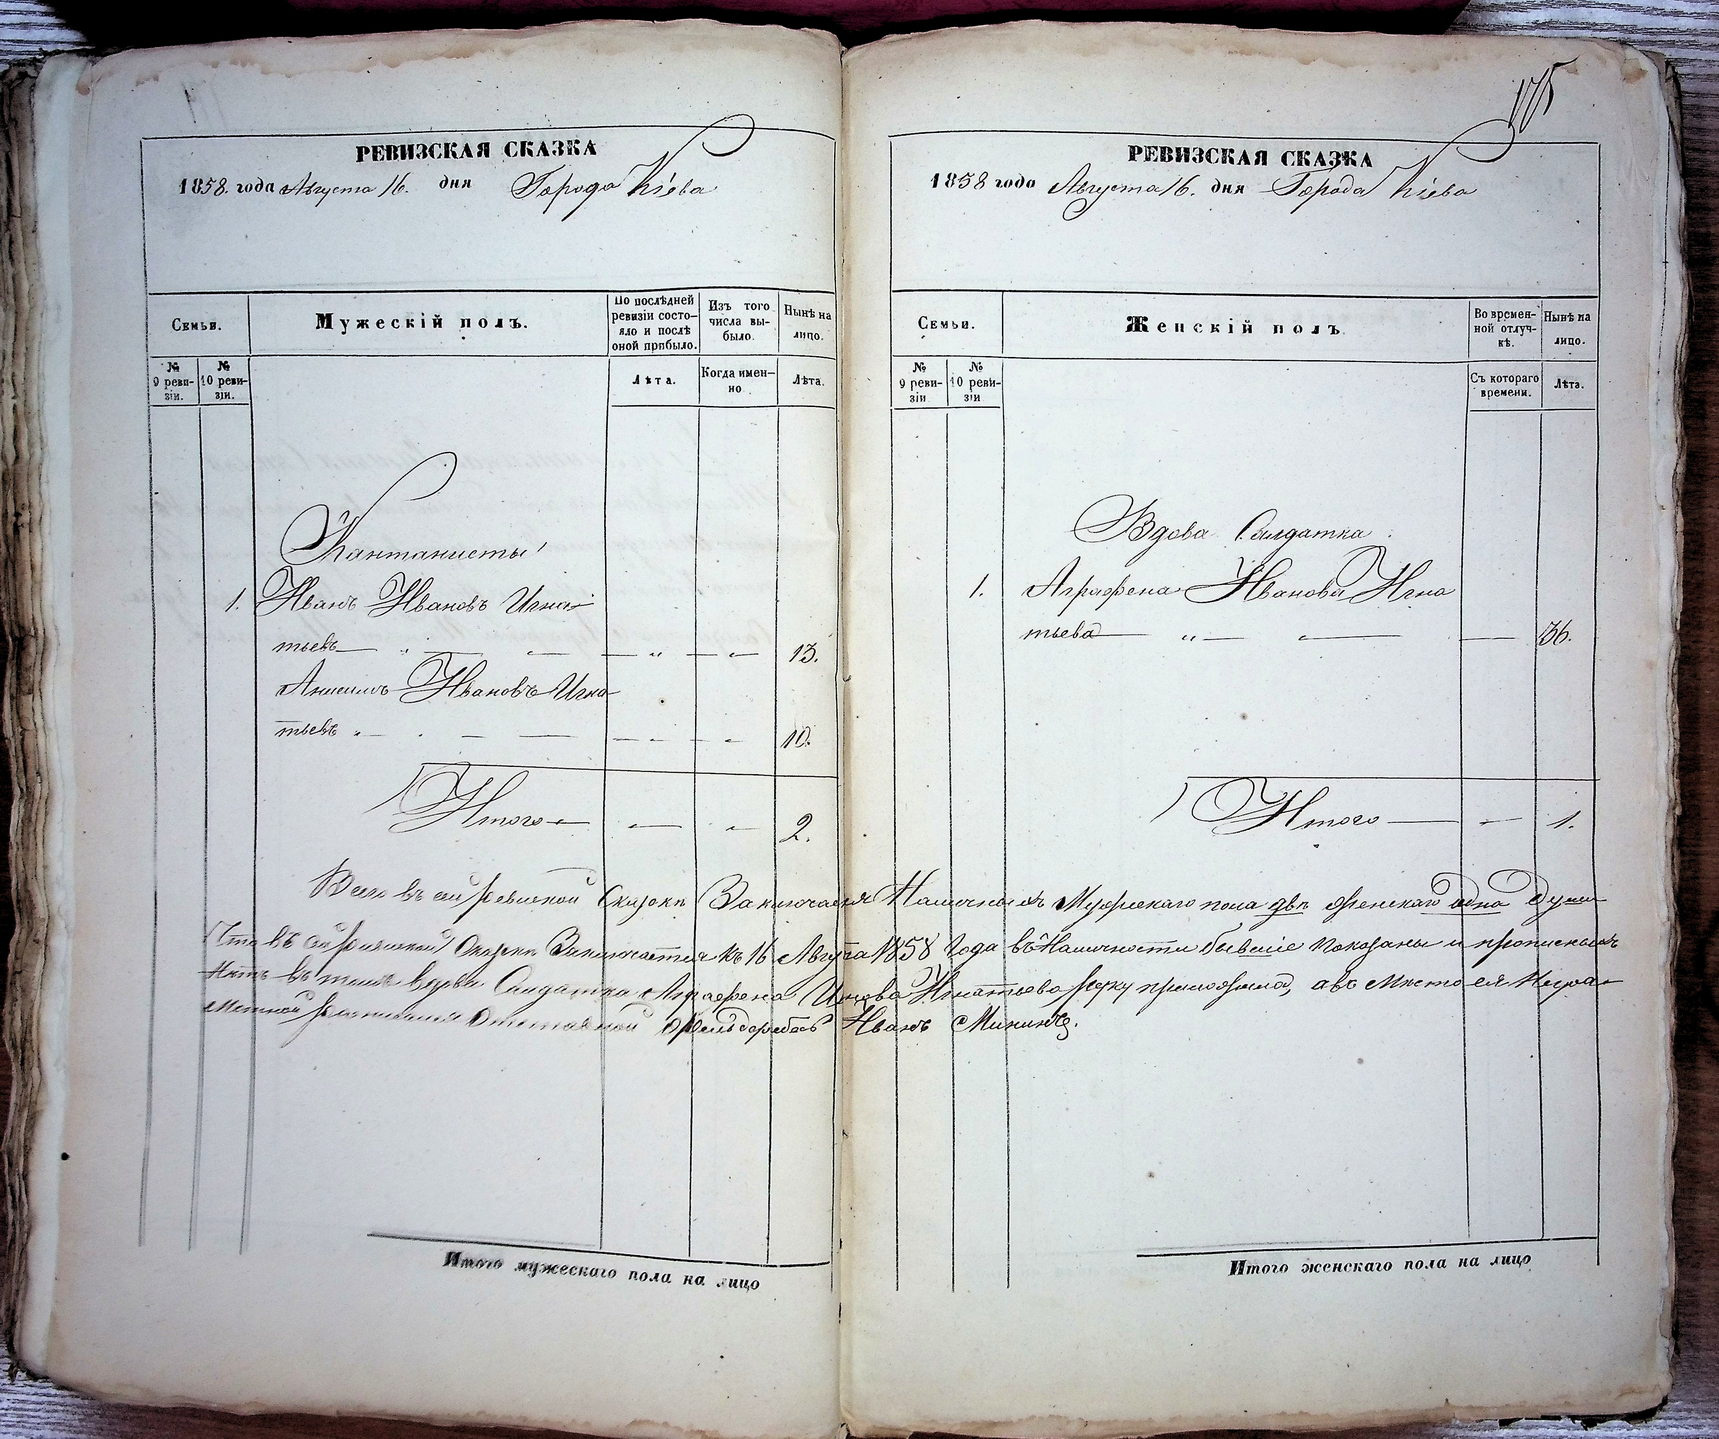 175
РЕВИЗСКАЯ СКАЗКА
1858. года Августа 16. дня Города Кіева
Семьи.
Мужескій полъ.
По послѣдней ревизіи состо-яло и послѣ оной прибыло.
Изъ того числа вы-было.
Нынѣ на лицо.
№ 9 реви-зіи.
№ 10 реви-зіи.
Лѣта.
Когда имен-но
Лѣта.
Кантанисты
1. Иванъ Ивановъ Игна-
тьевъ — „ — „ — „ — „ — 13.
Анисимъ Ивановъ Игна-
тьевъ „ — — — — „ — „ — 10.
Итого — — „ 2.
РЕВИЗСКАЯ СКАЗКА
1858 года Августа 16. дня Города Кіева
Семьи.
Женскій полъ
Во времен-ной отлуч-кѣ.
Нынѣ на лицо.
№ 9 реви-зіи
№ 10 реви-зіи
Съ котораго времени.
Лѣта.
Вдова Салдатка
1. Аграфена Иванова Игна
тьева — „ — „ — — 36.
Итого — — 1.
Всего въ сей ревизской Скаскѣ Заключается Наличныхъ Мужескаго пола двѣ женскаго одна Души
Что въ сей ревизской Скаскѣ Заключается къ 16 Августа 1858 Года въ Наличности бывшіе показаны и прописныхъ
Нѣтъ въ томъ вдова Салдатка Аграфена Игнатьева руку приложила, а въ Мѣсто ея Негра-
мотной росписался Отставной Иванъ
Итого мужескаго пола на лицо
Итого женскаго пола на лицо